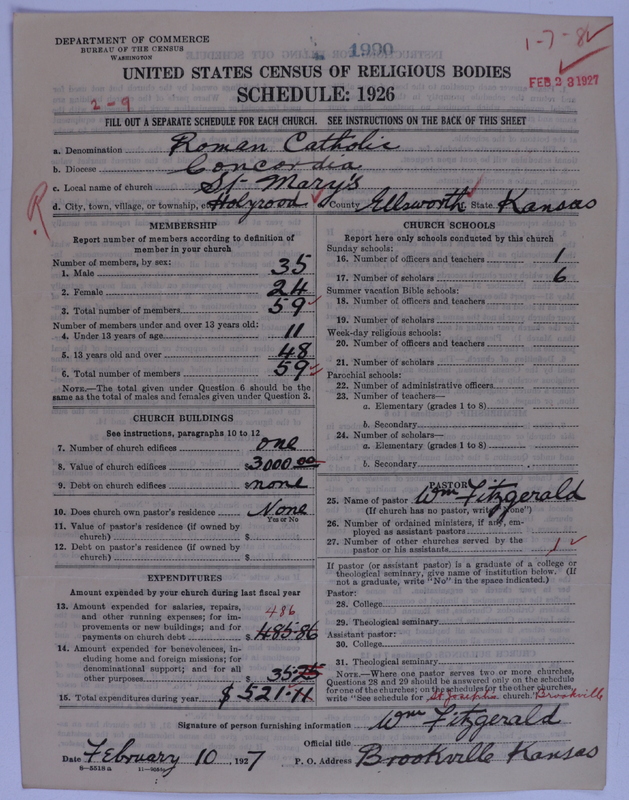 DEPARTMENT OF COMMERCE
BUREAU OF THE CENSUS
WASHINGTON
1990
1-7-8
FEB 23 1927
UNITED STATES CENSUS OF RELIGIOUS BODIES
SCHEDULE: 1926
2-9
FILL OUT A SEPARATE SCHEDULE FOR EACH CHURCH. SEE INSTRUCTIONS ON THE BACK OF THIS SHEET
a. Denomination Roman Catholic
b. Diocese Concordia
c. Local name of church St. Mary's
d. City, town, village, or township, etc. Holyrood County Ellsworth State Kansas
R
MEMBERSHIP
Report number of members according to definition of
member in your church
Number of members, by sex:
1. Male 35
2. Female 24
3. Total number of members 59
Number of members under and over 13 years old:
4. Under 13 years of age 11
5. 13 years old and over 48
6. Total number of members 59
NOTE.—The total given under Question 6 should be the
same as the total of males and females given under Question 3.
CHURCH BUILDINGS
See instructions, paragraphs 10 to 12
7. Number of church edifices one
8. Value of church edifices $3000.00
9. Debt on church edifices $none
10. Does church own pastor's residence None
Yes or No
11. Value of pastor's residence (if owned by
church) $
12. Debt on pastor's residence (if owned by
church) $
EXPENDITURES
Amount expended by your church during last fiscal year
13. Amount expended for salaries, repairs,
and other running expenses; for im-
provements or new buildings; and for
payments on church debt $485.86
486
14. Amount expended for benevolences, in-
cluding home and foreign missions; for
denominational support; and for all
other purposes $35.25
15. Total expenditures during year $521.11
CHURCH SCHOOLS
Report here only schools conducted by this church
Sunday schools:
16. Number of officers and teachers 1
17. Number of scholars 6
Summer vacation Bible schools:
18. Number of officers and teachers
19. Number of scholars
Week-day religious schools:
20. Number of officers and teachers
21. Number of scholars
Parochial schools:
22. Number of administrative officers
23. Number of teachers—
a. Elementary (grades 1 to 8)
b. Secondary
24. Number of scholars—
a. Elementary (grades 1 to 8)
b. Secondary
PASTOR
25. Name of pastor Wm Fitzgerald
(If church has no pastor, write "None")
26. Number of ordained ministers, if any, em-
ployed as assistant pastors
27. Number of other churches served by the
pastor or his assistants 1
If pastor (or assistant pastor) is a graduate of a college or
theological seminary, give name of institution below. (If
not a graduate, write "No" in the space indicated.)
Pastor:
28. College
29. Theological seminary
Assistant pastor:
30. College
31. Theological seminary
NOTE.—Where one pastor serves two or more churches,
Questions 28 and 29 should be answered only on the schedule
for one of the churches; on the schedules for the other churches,
write "See schedule for St. Josephs church. Brookville
Signature of person furnishing information Wm Fitzgerald
Official title
Date February 10, 1927 P. O. Address Brookville Kansas
8—5518 a